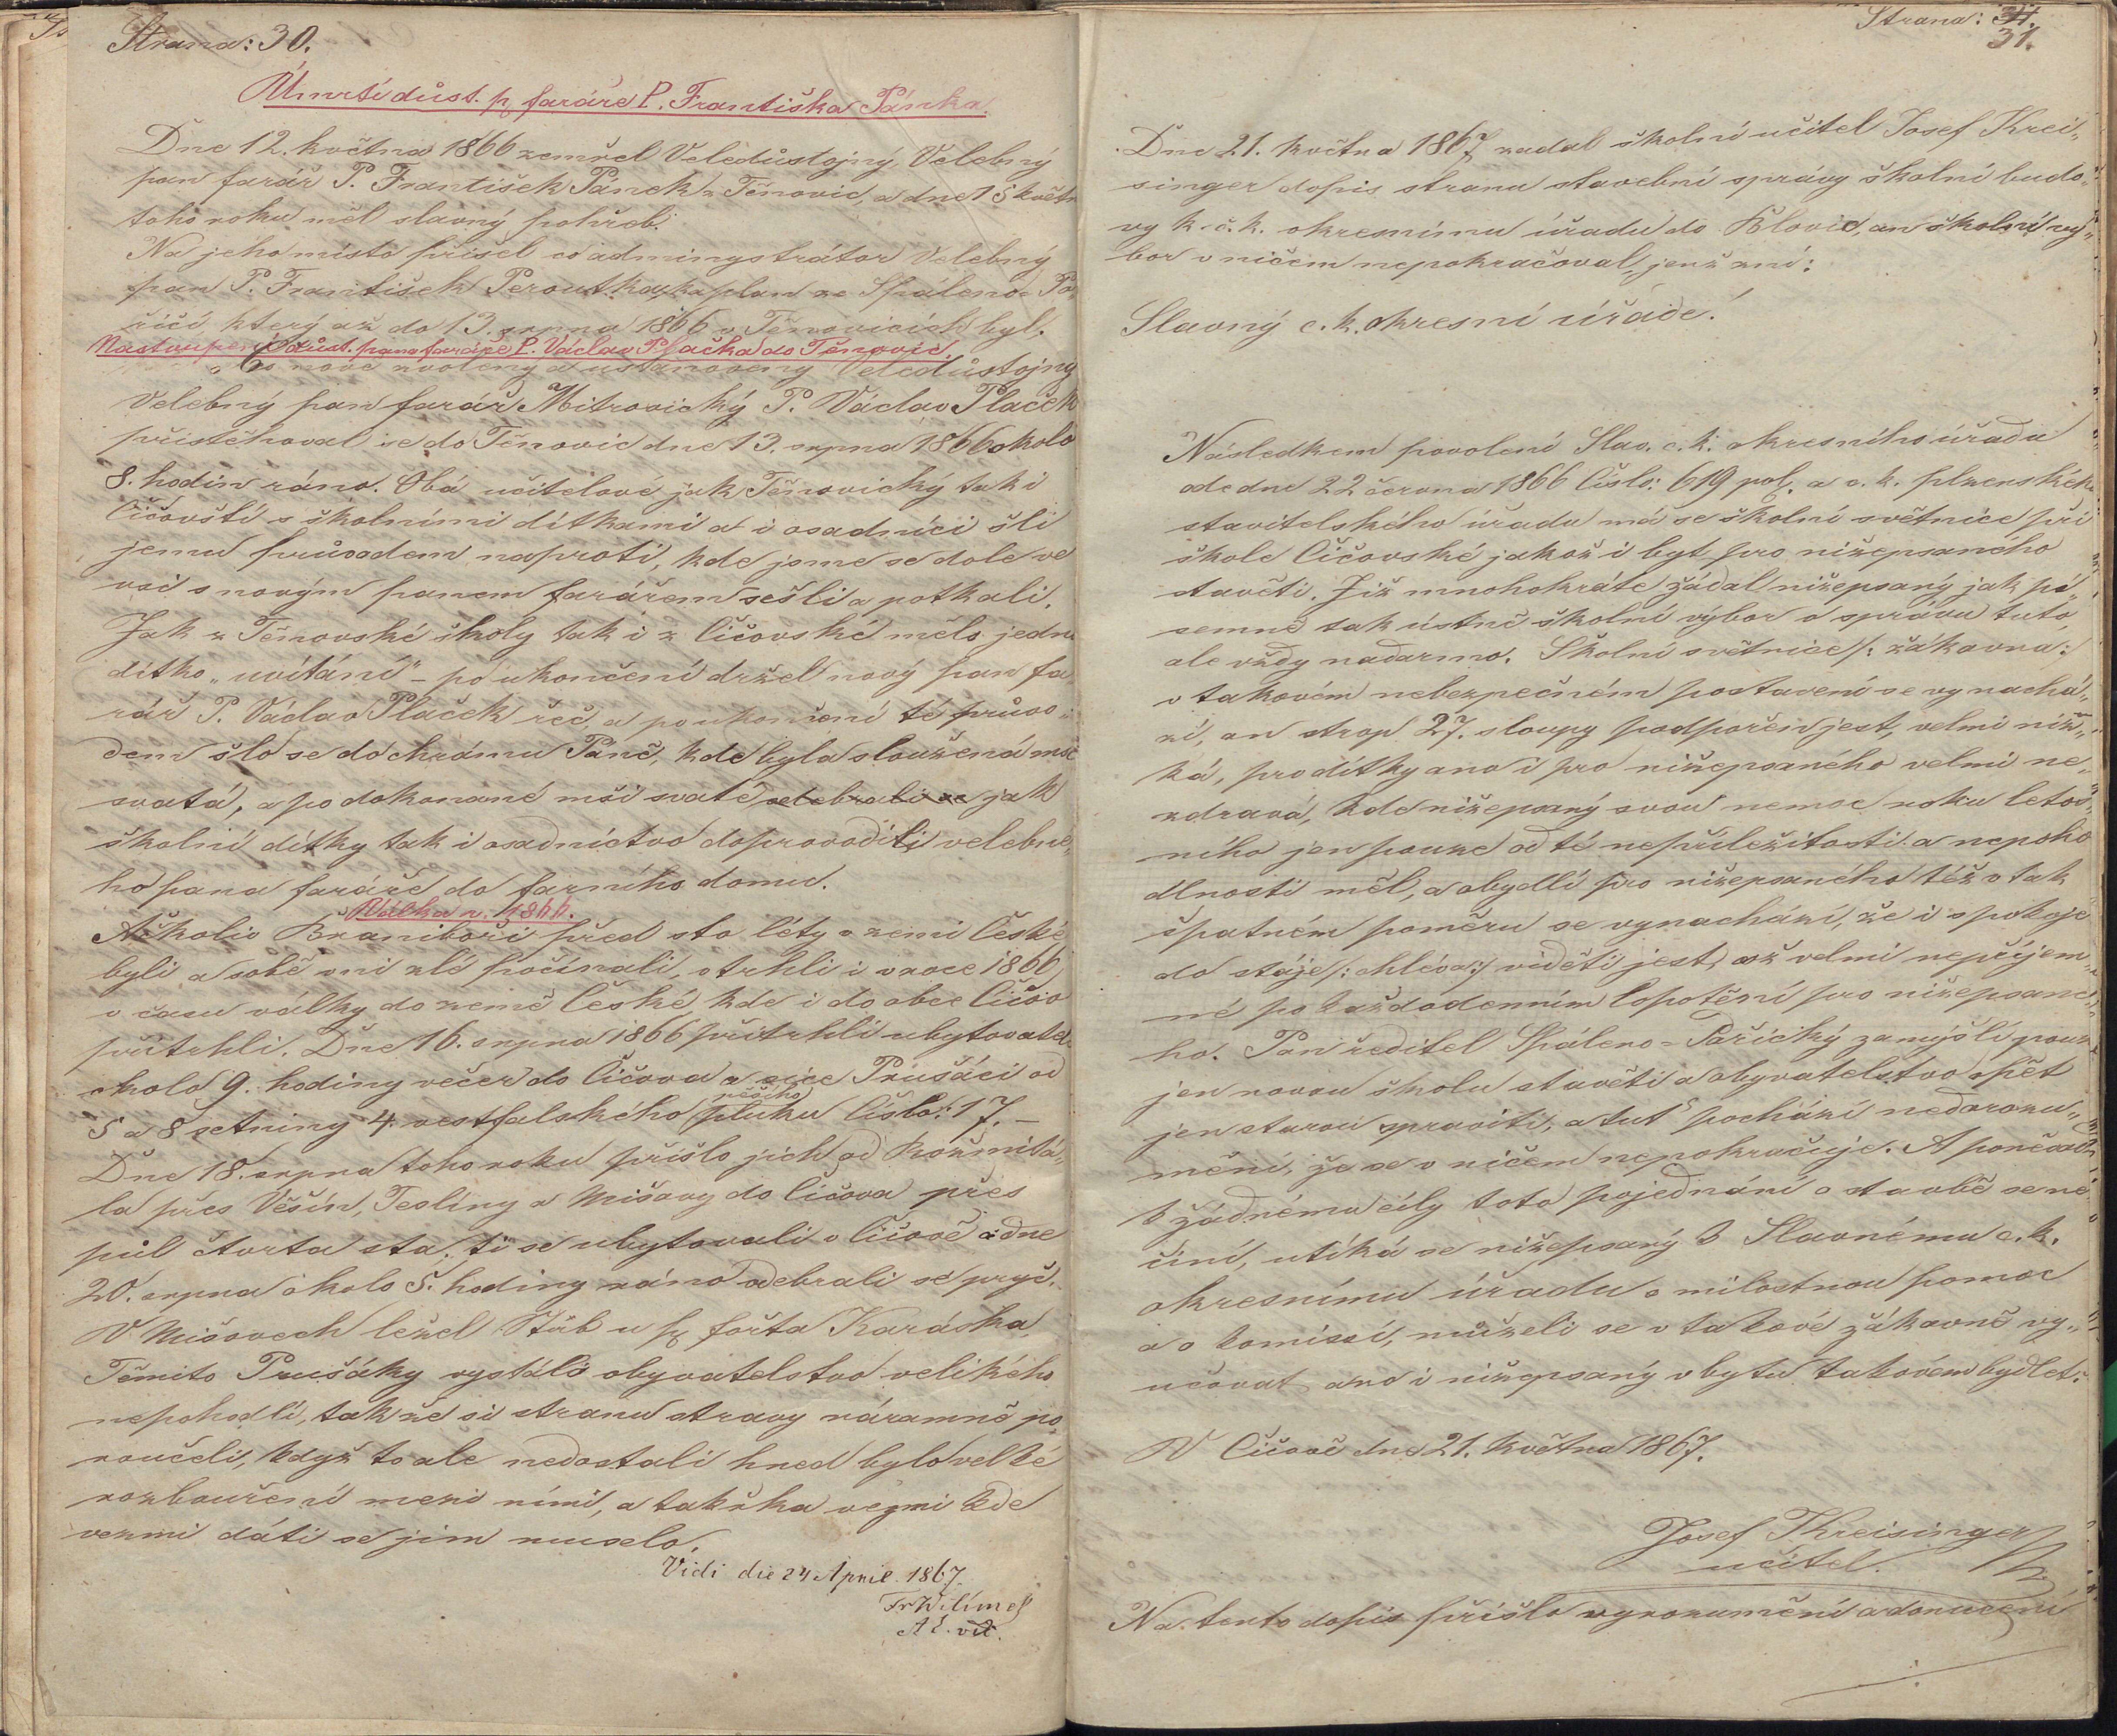 Strana: 30.
Úmrtí důst. p. faráře P. Františka Pánka.
Dne 12. května 1866 zemřel Veledůstojný, Velebný
pan farář P. František Pánek z Těnovic, a dne 15 květn
toho roku měl slavný pohřeb.
Na jeho místo přišel co administrátor Velebný
pan P. František Peroutka, kaplan ze Spáleno- Po-
říčí, který až do 13. srpna 1866 v Těnovicích byl.
Nastoupení důst. pana faráře P. Václava Plačka do Těnovic.
Co nově zvolený a ustanovený Veledůstojný
Velebný pan farář Mitrovický P. Václav Plaček
přistěhoval se do Těnovic dne 13. srpna 1866 okolo
8. hodin ráno. Obá učitelové jak Těnovický tak i
Čičovští s školními dítkami a i osadníci šli
jemu průvodem naproti, kde jsme se dole ve
vsi s novým panem farářem sešli a potkali.
Jak z Těnovské školy tak i z Čičovské mělo jedno
dítko „uvítání" – po ukončení držel nový pan fa
rář P. Václav Plaček řeč, a po ukončení té průvo-
dem šlo se do chrámu Páně, kde byla sloužená mše
svatá, a po dokonané mši svaté odebrali se jak
školní dítky tak i osadnictvo doprovodili velebné-
ho pana faráře do farního domu.
Válka r. 1866.
Ačkoliv Braniboři před sto léty v zemi České
byli a sobě v ni zlé počínali, vtrhli i v roce 1866
v času války do země České, kde i do obce Čičov
přitrhli. Dne 16. srpna 1866 přitrhli ubytovatel
okolo 9. hodiny večer do Čičova a sice Prušáci od
5 a 8 setniny 4. vestfalského pěšího pluku Číslo: 17. –
Dne 18. srpna toho roku přišlo jich od Rožmitá-
la přes Věšín, Teslíny a Mišovy do Čičova přes
půl čtvrta sta, ti se ubytovali v Čičově a dne
20. srpna okolo 5. hodiny ráno odebrali se pryč.
V Mišovech ležel Štáb u p. fořta Karáska.
Těmito Prušáky vystálo obyvatelstvo velikého
nepohodlí, takže si stranu stravy náramně po-
roučeli, když to ale nedostali hned bylo velké
rozbouření mezi nimi, a takřka vezmi kde
vezmi dáti se jim muselo.
Vidi die 24 April. 1867.
Fr Wilímek
A. E. vic.
Strana: 31.
31.
Dne 21. května 1867 zadal školní učitel Josef Krei-
singer dopis stranu stavební správy školní budo-
vy k c. k. okresnímu úřadu do Blovic, an školní vý-
bor v ničem nepokračoval, jenž zní:
Slavný c. k. okresní úřade!
Následkem povolení Slav. c. k. okresního úřadu
ode dne 22 června 1866 Číslo: 619 pol. a c. k. plzenského
stavitelského úřadu má se školní světnice při
škole Čičovské jakož i byt pro nižepsaného
stavěti. Již mnohokráte žádal nižepsaný jak pí-
semně tak ústně školní výbor o správu tuto,
ale vždy nadarmo. Školní světnice /: žákovna :/
v takovém nebezpečném postavení se vynachá-
zí, an strop 27. sloupy podpořen jest, velmi níz-
ká, pro dítky ano i pro nižepsaného velmi ne-
zdravá, kde nižepsaný svou nemoc roku letoš-
ního jen pouze od té nepříležitosti a nepoho
dlnosti měl, a obydlí pro nižepsaného též v tak
špatném poměru se vynachází, že i z pokoje
do stáje /: chléva :/ viděti jest, což velmi nepříjem-
né po každodenním lopotění pro nižepsané-
ho. Pan ředitel Spáleno-Pořícký zamýšlí pouze
jen novou školu stavěti a obyvatelstvo opět
jen starou spraviti, a tuť pochází nedorozu-
mění, že se v ničem nepokračuje. A poněvadž
k žádnému cíly toto pojednání o stavbě se ne
činí, utíká se nižepsaný k Slavnému c. k.
okresnímu úřadu o milostnou pomoc
a o komissí, může-li se v takové žákovně vy-
učovat ano i nižepsaný v bytu takovém bydlet.
V Čičově dne 21. května 1867.
Josef Kreisinger
učitel.
Na tento dopis přišlo vyrozumění a donucení